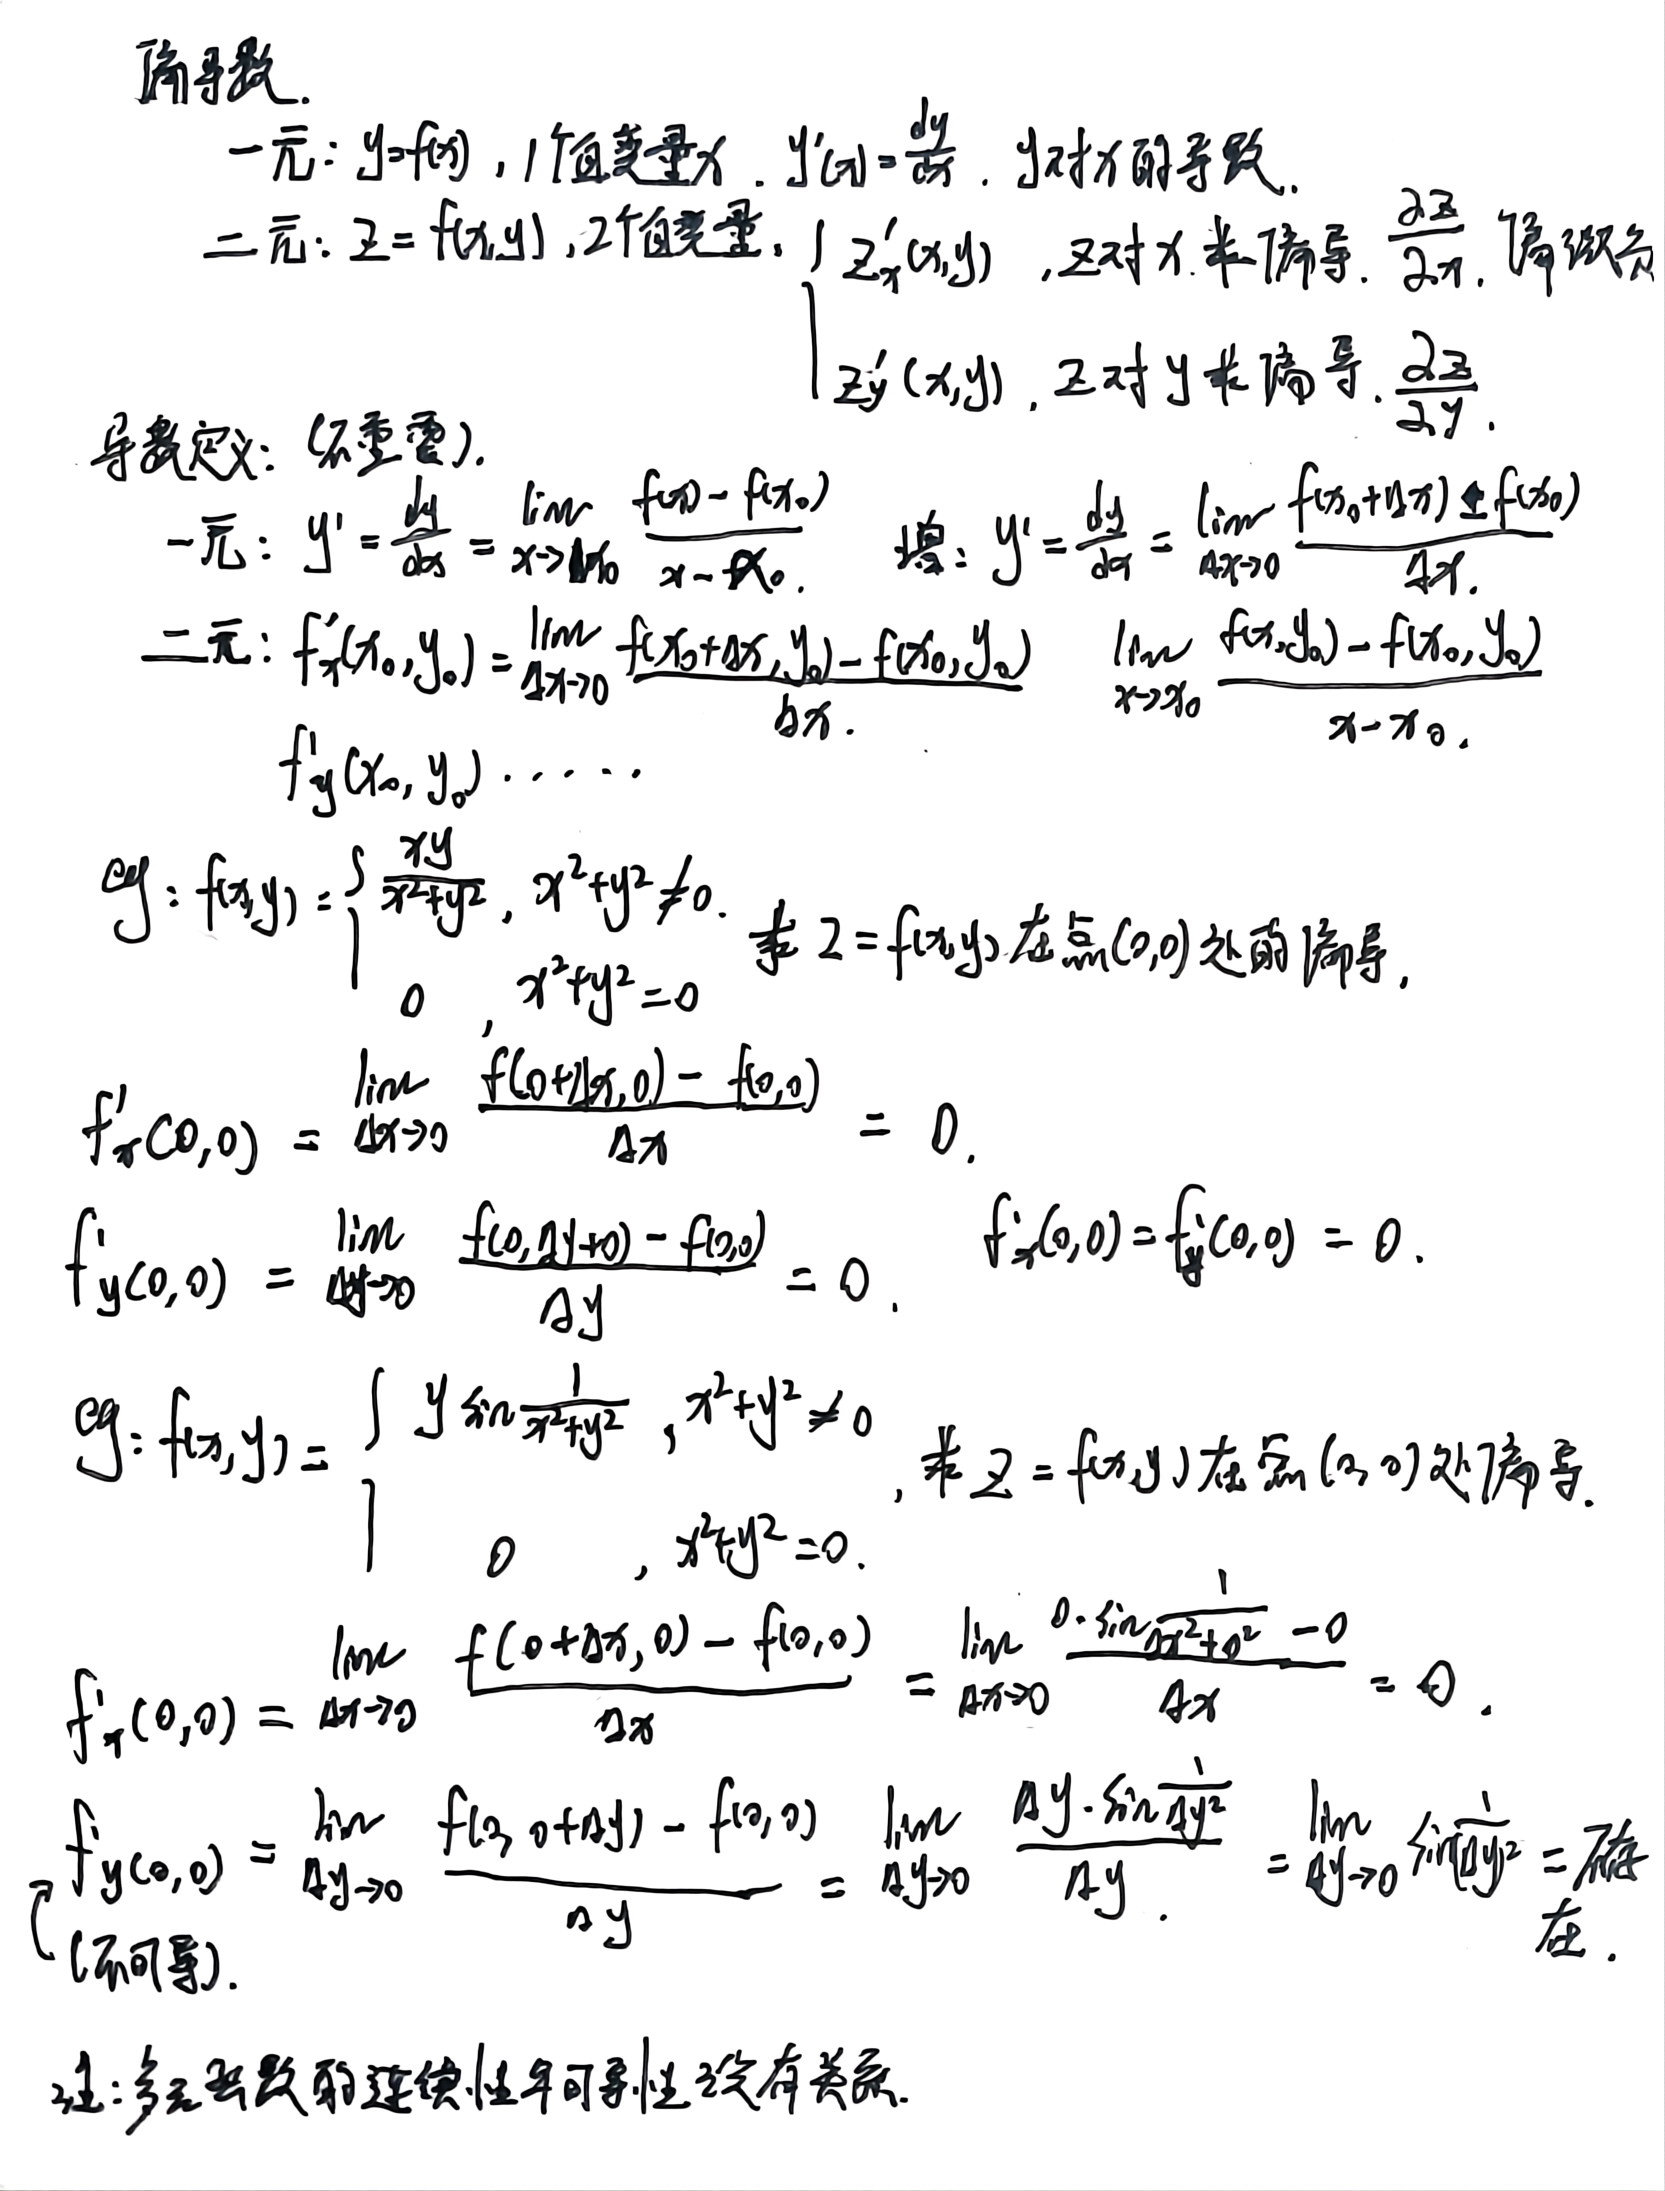 偏导数.
一元: y=f(x), 1个自变量x. y'(x)=dy/dx. y对x的导数.
二元: z=f(x,y), 2个自变量. { z'x(x,y), z对x.求偏导. ∂z/∂x. 偏微分
z'y(x,y). z对y求偏导. ∂z/∂y.
导数定义: (不重要).
一元: y'=dy/dx=lim x→x₀ (f(x)-f(x₀))/(x-x₀). 增: y'=dy/dx=lim Δx→0 (f(x₀+Δx)-f(x₀))/Δx.
二元: f'x(x₀,y₀)=lim Δx→0 (f(x₀+Δx,y₀)-f(x₀,y₀))/Δx. lim x→x₀ (f(x,y₀)-f(x₀,y₀))/(x-x₀).
f'y(x₀,y₀)......
eg: f(x,y)={ xy/(x²+y²), x²+y²≠0. 求z=f(x,y)在点(0,0)处的偏导.
0, x²+y²=0
f'x(0,0)=lim Δx→0 (f(0+Δx,0)-f(0,0))/Δx=0.
f'y(0,0)=lim Δy→0 (f(0,Δy+0)-f(0,0))/Δy=0. f'x(0,0)=f'y(0,0)=0.
eg: f(x,y)={ y sin 1/(x²+y²), x²+y²≠0, 求z=f(x,y)在点(0,0)处偏导.
0, x²+y²=0.
f'x(0,0)=lim Δx→0 (f(0+Δx,0)-f(0,0))/Δx=lim Δx→0 (0·sin 1/(Δx²+0²)-0)/Δx=0.
f'y(0,0)=lim Δy→0 (f(0,0+Δy)-f(0,0))/Δy=lim Δy→0 (Δy·sin 1/Δy²)/Δy.=lim Δy→0 sin 1/(Δy)²=不存
在.
(不可导).
注:多元函数的连续性与可导性没有关系.